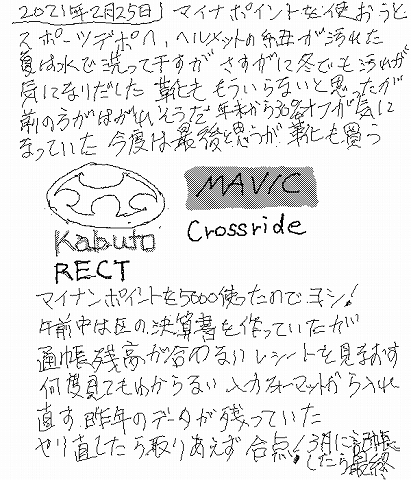 2021年2月25日 マイナポイントを使おうと
スポーツデポへ、ヘルメットの紐が汚れた
夏は水で洗って干すが さすがに冬でも汚れが
気になりだした 靴も もういらないと思ったが
前の方がはがれそうだ 年末から30%オフが気に
なっていた 今度は最後と思うが 靴も買う
Kabuto
RECT
MAVIC
Crossride
マイナンポイントを5000使ったので ヨシ!
午前中は区の決算書を作っていたが
通帳残高が合わない レシートを見なおす
何度見てもわからない 入力フォーマットから入れ
直す 昨年のデータが残っていた
やり直したら取りあえず 合点! 3月に記帳
したら最終